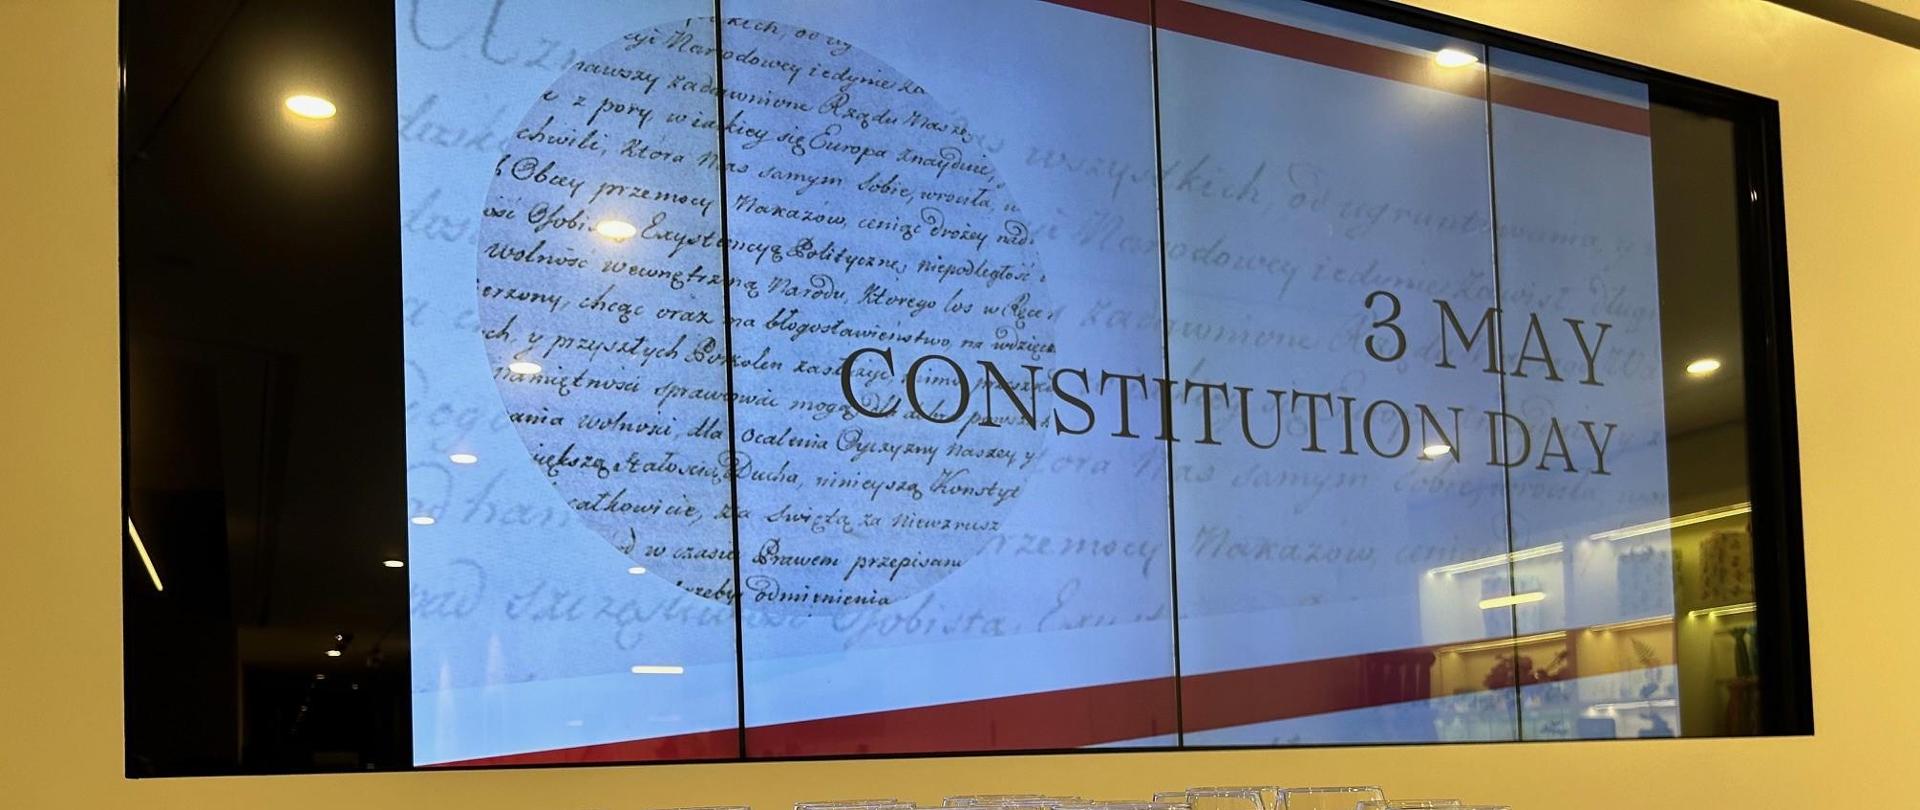 cyi Narodowey iedynie za
nawszy zadawnione Rządu Naszego
e z pory, w iakiey się Europa znayduie,
chwili, która Nas samym sobie, wrociła, w
Obcey przemocy Nakazów, ceniąc drożey nad
ość Osobistą Exystencyą Polityczną, niepodległość
wolność wewnętrzną Narodu, którego los w Ręce
erzony, chcąc oraz na błogosławieństwo, na wdzięcz
ch, y przyszłych Pokoleń zasłużyć, mimo przeszkó
Namiętności sprawować mogą, dla dobra powszech
ania wolności, dla Ocalenia Oyczyzny Naszey y
iększą stałością Ducha, ninieyszą Konstyt
całkowicie, za świętą za niewzrusz
d w czasie Prawem przepisan
żeby odmienienia
wszystkich, od ugruntowania
Narodowey iedynie zawisł
zadawnione
Nas samym sobie, wrociła,
rzemocy Nakazów, ceniąc
nad szczęśliwość Osobistą, Exyst
3 MAY
CONSTITUTION DAY